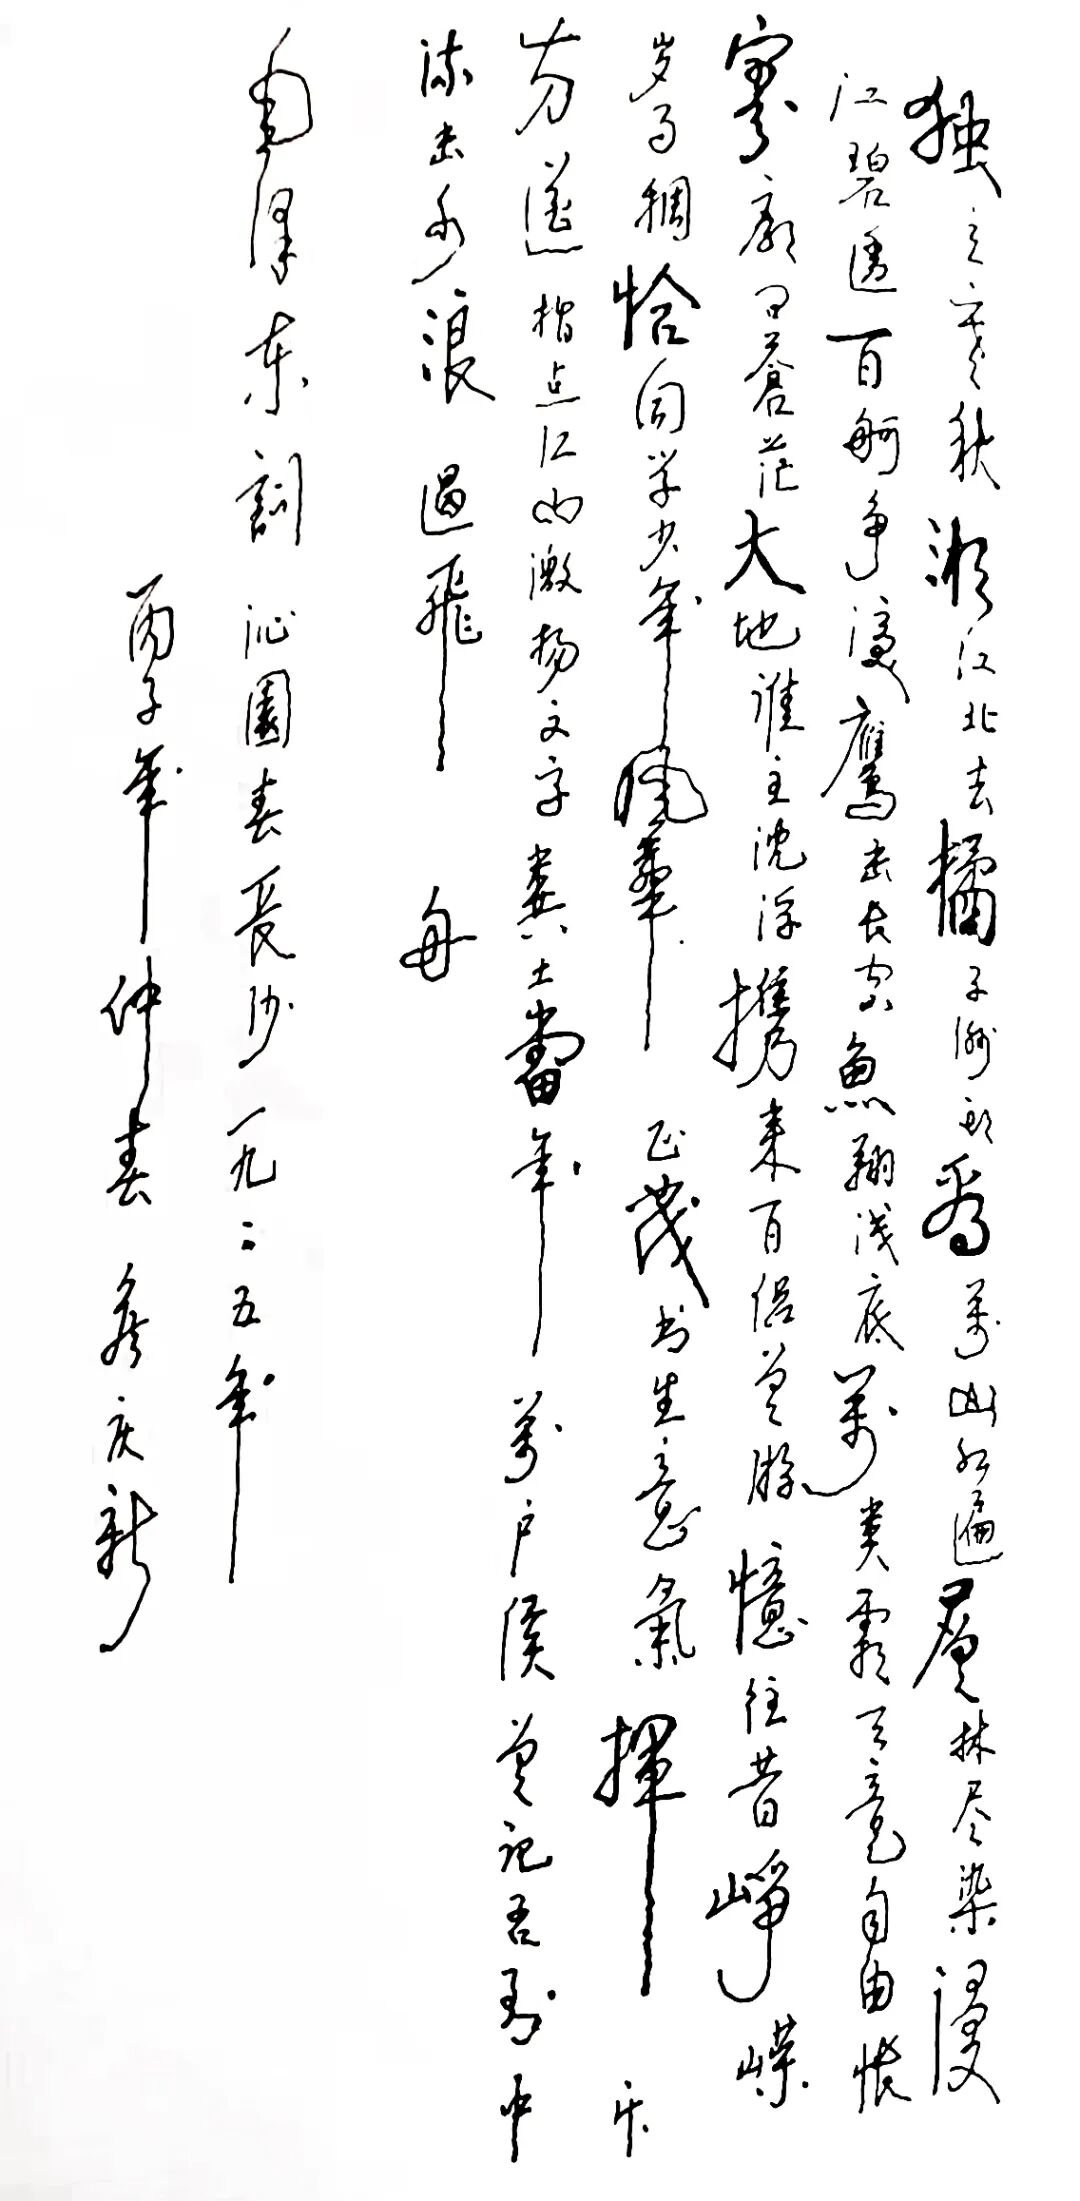 独立寒秋湘江北去橘子洲头看萬山红遍層林尽染漫
江碧透百舸争渡鷹击长空魚翔浅底萬类霜天竞自由怅
寥廓问蒼茫大地谁主沈浮携来百侣曾游憶往昔峥嵘
岁月稠恰同学少年風華正茂书生意氣揮斥
方遒指点江山激扬文字糞土當年萬户侯曾记否到中
流击水浪遏飛舟
毛泽东詞沁園春長沙一九二五年
丙子年仲春庆新